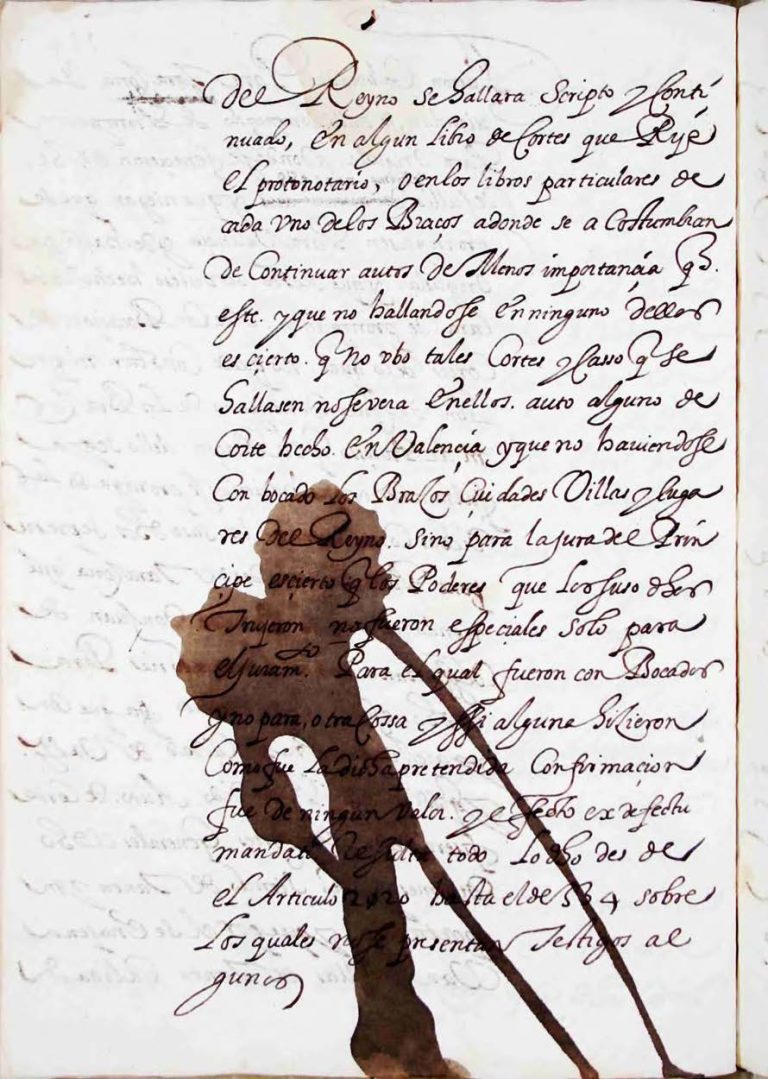 del Reyno se hallara scripto y Conti
nuado, en algun libro de Cortes que Rije
el protonotario, o en los libros particulares de
cada vno de los Bracos adonde se a Costumbran
de Continuar autos de Menos importançia q̃.
este. y que no hallandose en ninguno dellos
es cierto. q̃ No vbo tales Cortes y Casso q̃ se
hallasen no se vera en ellos. auto alguno de
Corte hecho. en Valencia y que no haviendose
Con bocado los Brazos Ciudades Villas y luga
res del Reyno. sino para la jura del Prin
çipe es cierto q̃ los Poderes que los suso dhos
Trujeron no fueron espeçiales solo para
el juramto. Para el qual fueron con Bocados
y no para, otra Cossa y si alguna hizieron
Como fue la dicha pretendida Confirmaçion
fue de ningun valor. y efecto ex defectu
mandati Resulta todo lo dho des de
el Articulo hasta el de 534 sobre
los quales no se presentan Testigos al
gunos